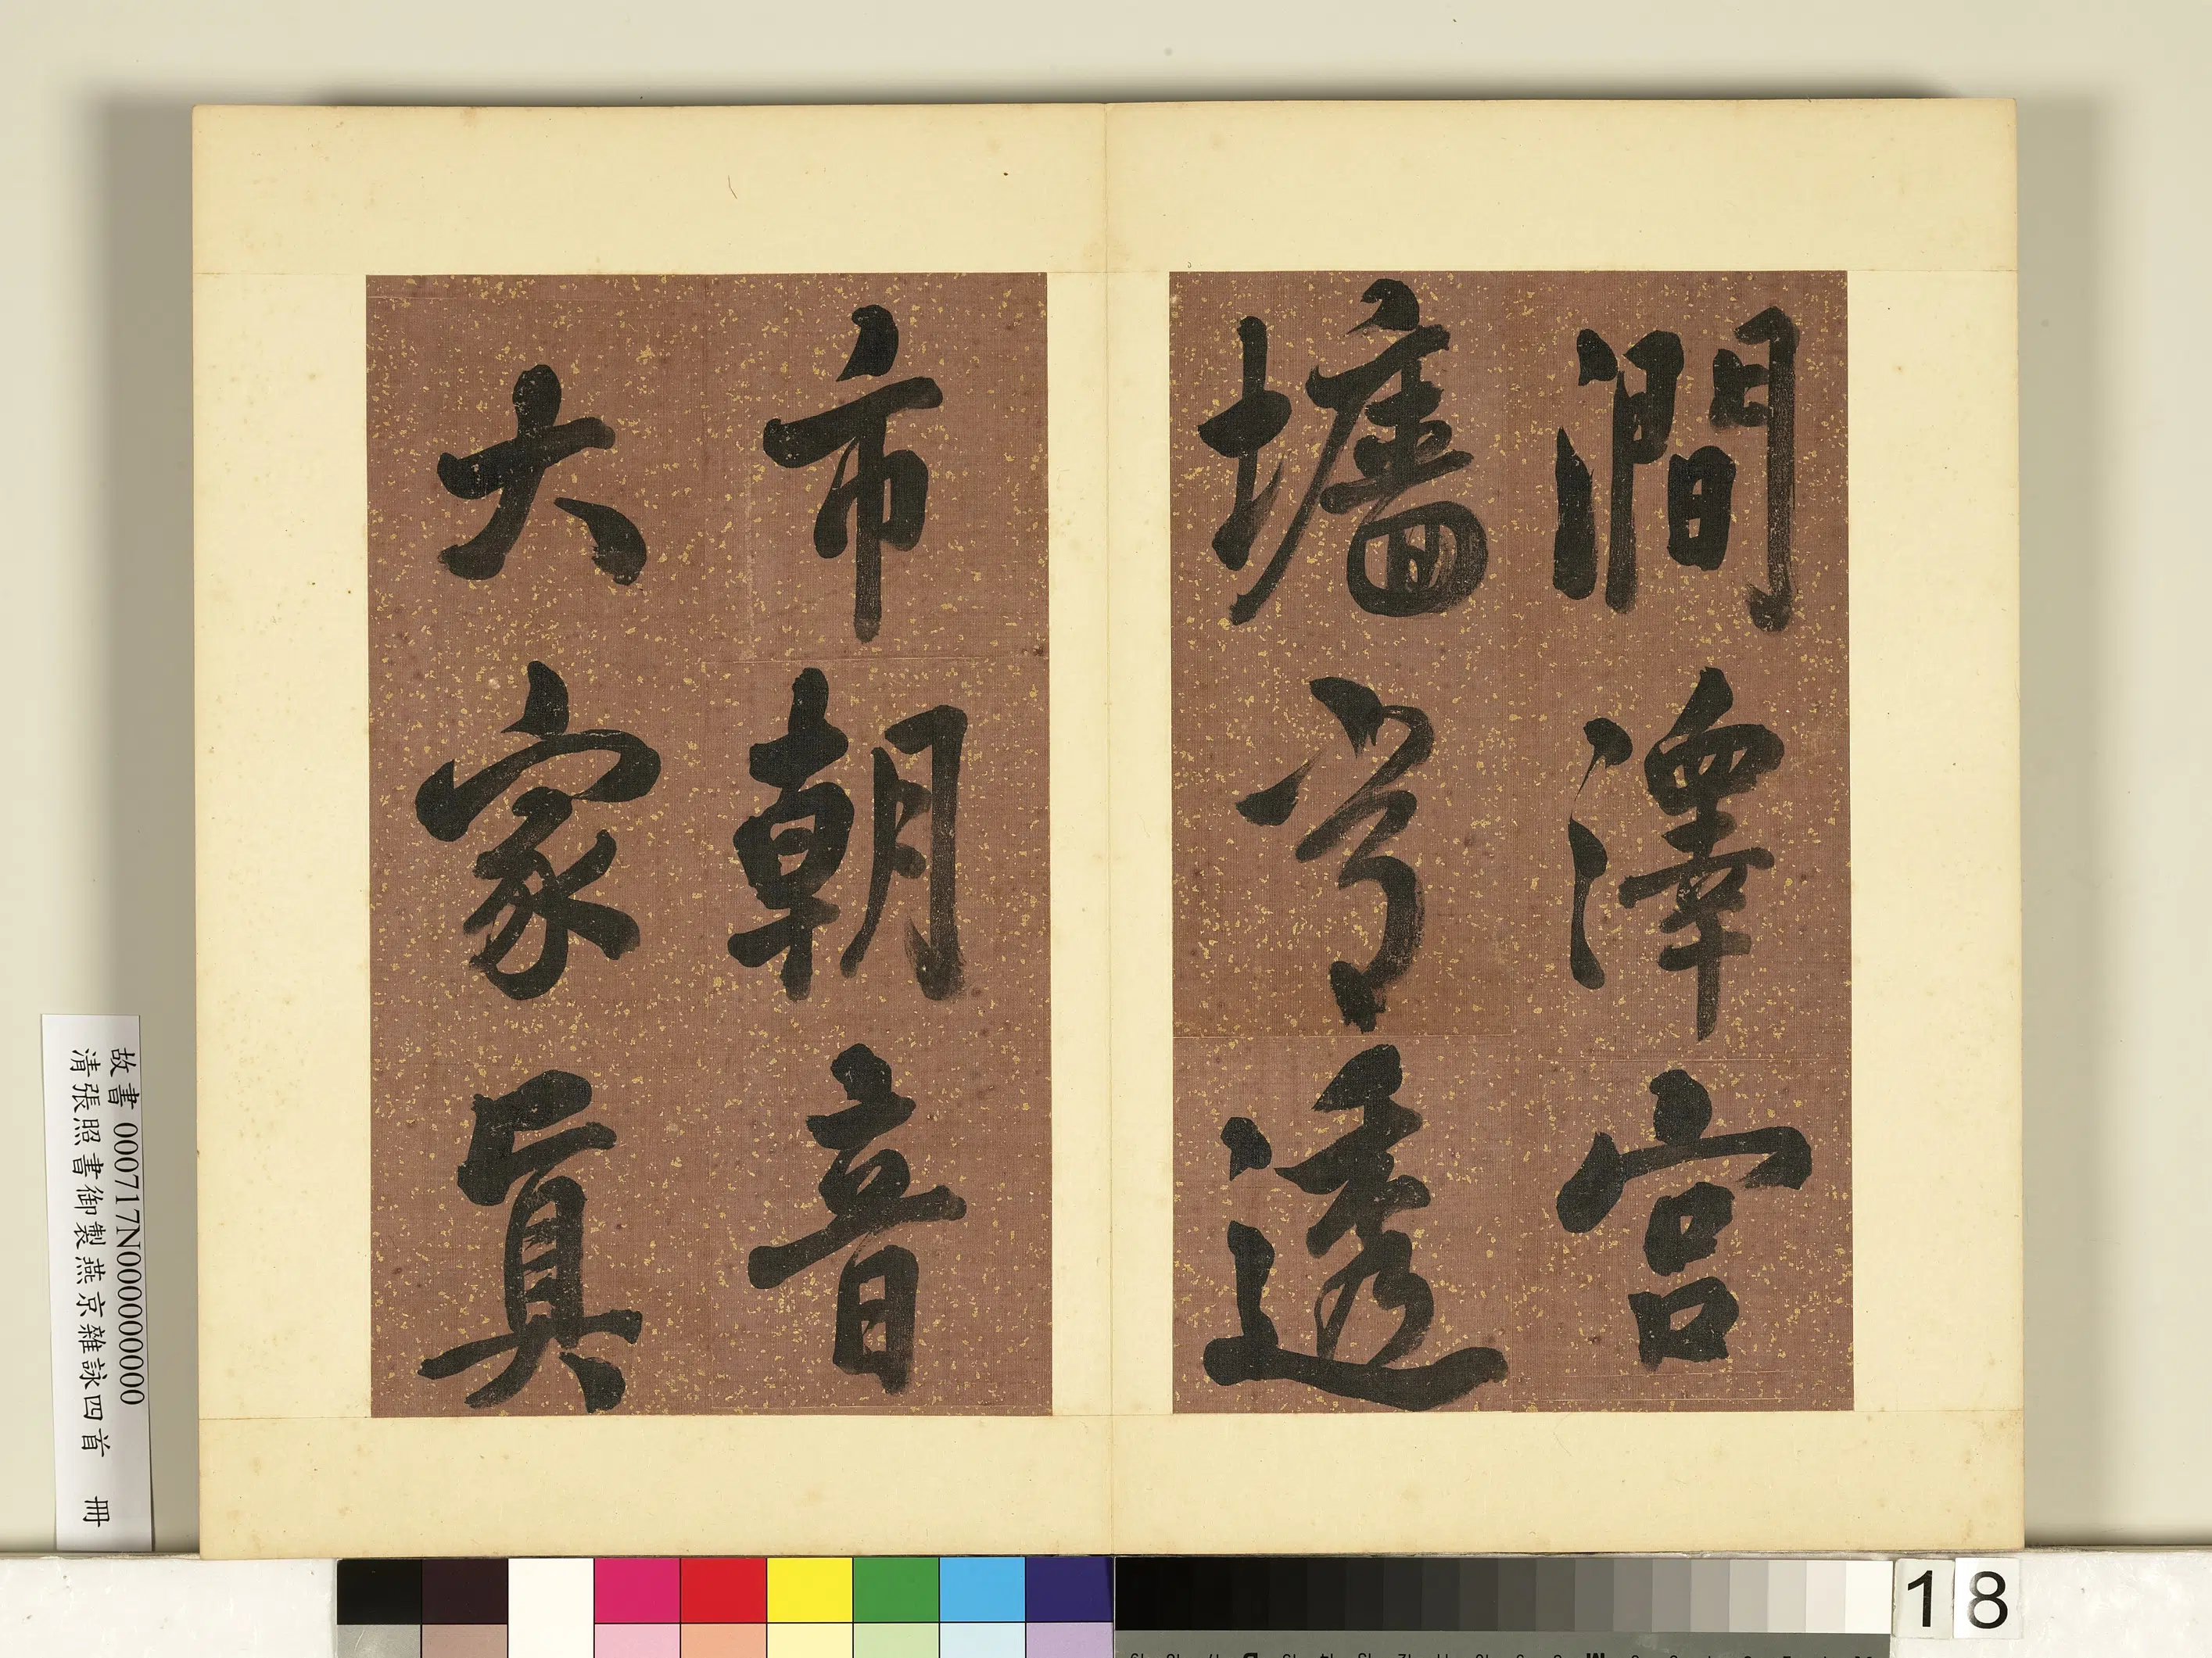 澗澤宮
墻透
市朝音
大家眞
故書 000717N000000000
清張照書御製燕京雜詠四首 冊
18